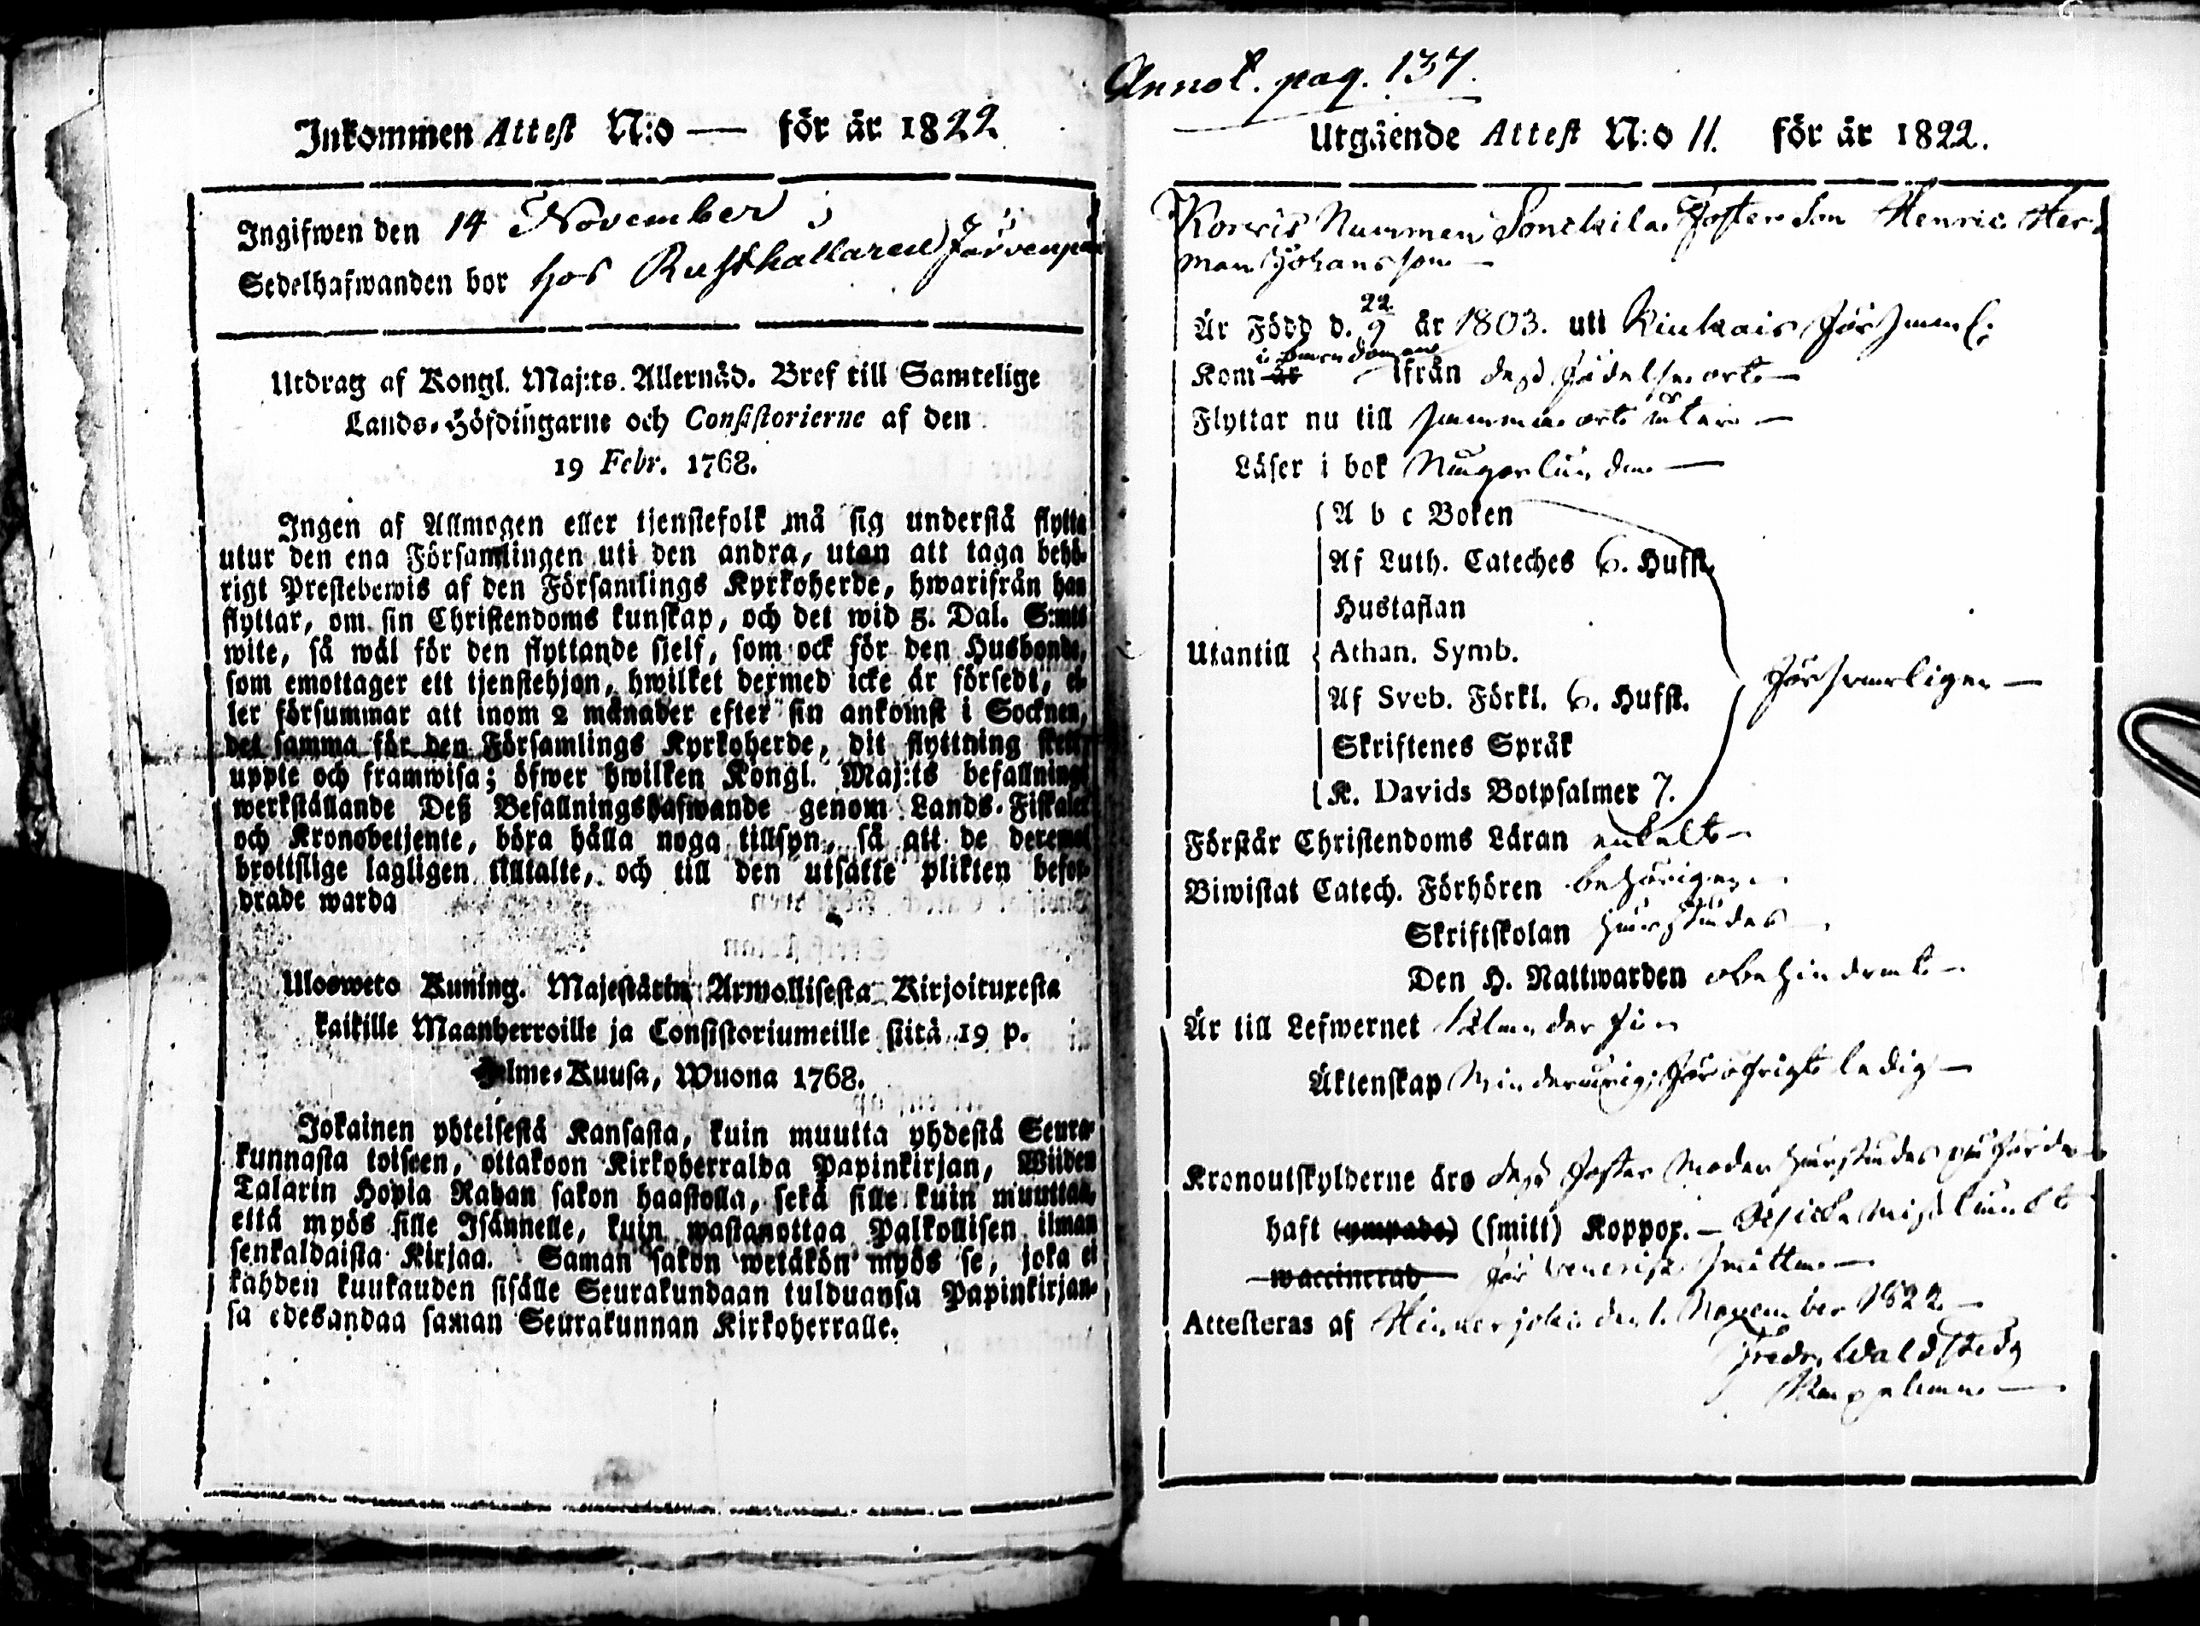 Inkommen Attest N:o — för år 1822
Ingifwen den 14 November
Sedelhafwanden bor hos Rusthållaren
Utdrag af Kongl. Maj:ts. Allernåd. Bref till Samtelige
Lands-Höfdingarne och Consistorierne af den
19 Febr. 1768.
Ingen af Allmogen eller tjenstefolk må sig understå flytta
utur den ena Församlingen uti den andra, utan att taga behö-
rigt Prestebewis af den Församlings Kyrkoherde, hwarifrån han
flyttar, om sin Christendoms kunskap, och det wid 5. Dal. S:mts
wite, så wäl för den flyttande sjelf, som ock för den Husbonde,
som emottager ett tjenstehjon, hwilket dermed icke är försedt, el-
ler försummar att inom 2 månader efter sin ankomst i Socknen,
det samma för den Församlings Kyrkoherde, dit flyttning skett,
uppte och framwisa; öfwer hwilken Kongl. Maj:ts befallnings
werkställande Deß Befallningshafwande genom Lands-Fiskaler
och Kronobetjente, böra hålla noga tillsyn, så att de deremot
brottslige lagligen tilltalte, och till den utsatte plikten befor-
drade warda
Ulosweto Kuning. Majestätin Armollisesta Kirjoituxesta
kaikille Maanherroille ja Consistoriumeille siitä 19 p.
Helme-Kuusa, Wuona 1768.
Jokainen yhteisestä Kansasta, kuin muutta yhdestä Seura-
kunnasta toiseen, ottakoon Kirkoherralda Papinkirjan, Wiiden
Talarin Hopia Rahan sakon haastolla, sekä sille kuin muuttaa,
että myös sille Isännelle, kuin wastanottaa Palkollisen ilman
senkaldaista Kirjaa. Saman sakon wetäkön myös se, joka ei
kahden kuukauden sisälle Seurakundaan tulduansa Papinkirjan-
sa edesandaa saman Seurakunnan Kirkoherralle.
Annot. pag. 137.
Utgående Attest N:o 11. för år 1822.
Korvis Nummen Sonckila Fosterson Henric Her-
man Johansson
Är Född d. 22/9 år 1803. uti Kiukais
Kom är i barndomen ifrån dess födelseort
Flyttar nu till samma ort åter
Läser i bok någorlunda
A b c Boken
Af Luth. Cateches 6. Hufst.
Hustaflan
Utantill Athan. Symb. försvarligen
Af Sveb. Förkl. 6. Hufst.
Skriftenes Språk
K. Davids Botpsalmer 7.
Förstår Christendoms Läran enkelt
Biwistat Catech. Förhören behörigen
Skriftskolan
Den H. Nattwarden obehindrat
Är till Lefwernet
Äktenskap Minderårig, för öfrigt ledig
Kronoutskylderne äro dess foster Moder
haft (ympade) (smitt) Koppor. —
waccinerad för venerisk smitta
Attesteras af Hinnerjoki den 1. November 1822
Fredr. Waldstedt
Kapellan